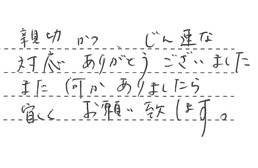 親切 かつ、じん速な
対応 ありがとう ございました
また 何か ありましたら
宜しく お願い致します。